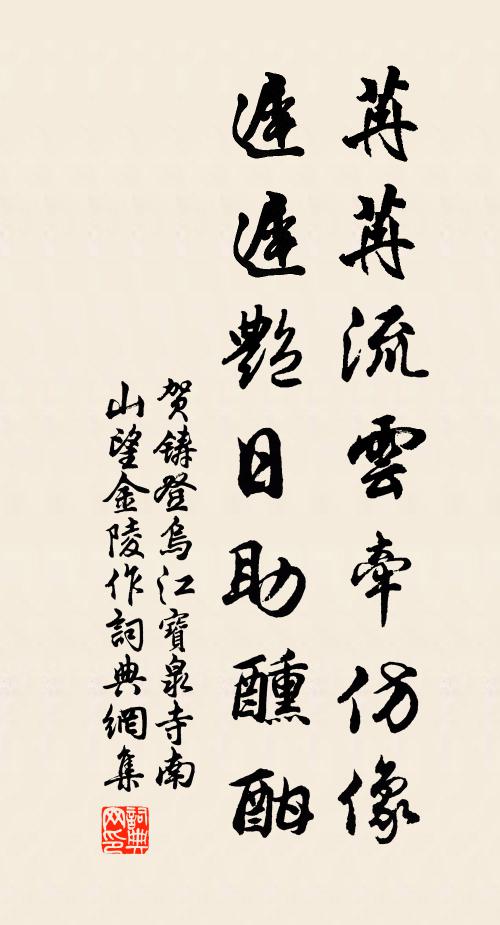 苒苒流雲牽仿像
遲遲艷日助醺酣
賀鑄登烏江寶泉寺南
山望金陵作詞典網集
詞典
网印